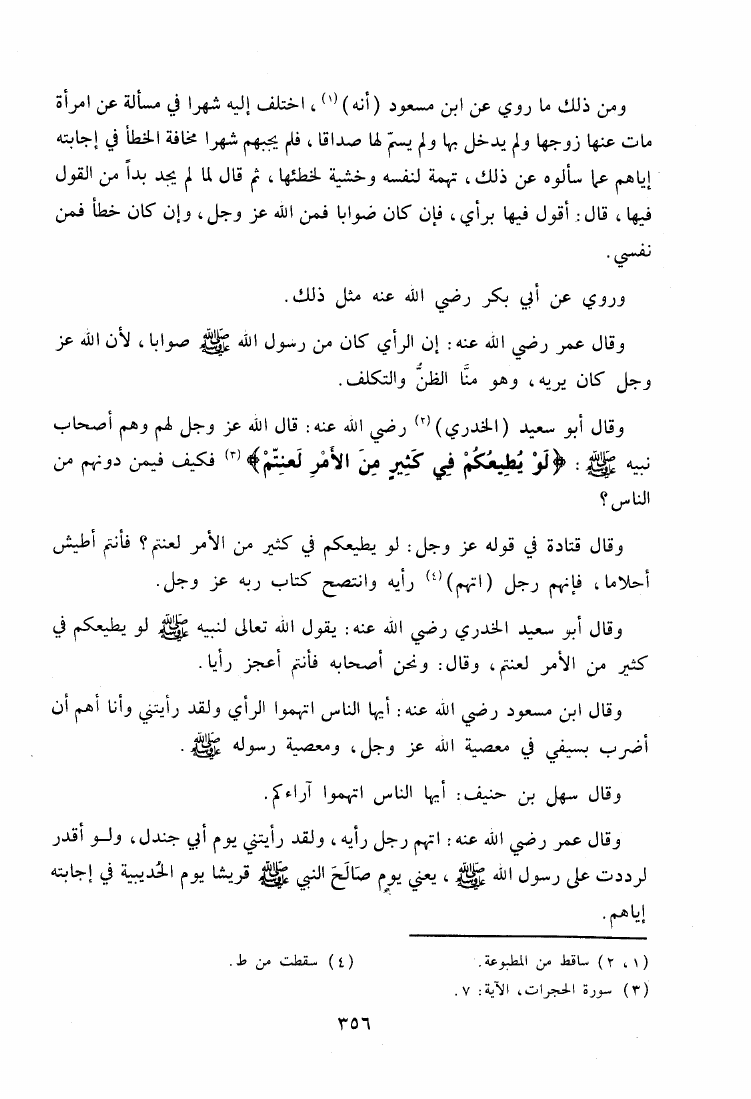 ومن ذلك ما روي عن ابن مسعود (أنه)(١)، اختلف إليه شهرا في مسألة عن امرأة
مات عنها زوجها ولم يدخل بها ولم يسمّ لها صداقا، فلم يجبهم شهرا مخافة الخطأ في إجابته
إياهم عما سألوه عن ذلك، تهمة لنفسه وخشية لخطئها، ثم قال لما لم يجد بداً من القول
فيها، قال: أقول فيها برأي، فإن كان ضوابا فمن الله عز وجل، وإن كان خطأ فمن
نفسي.
وروي عن أبي بكر رضي الله عنه مثل ذلك.
وقال عمر رضي الله عنه: إن الرأي كان من رسول الله ﷺ صوابا، لأن الله عز
وجل كان يريه، وهو منَّا الظنُّ والتكلف.
وقال أبو سعيد (الخدري)(٢) رضي الله عنه: قال الله عز وجل لهم وهم أصحاب
نبيه ﷺ: ﴿لَوْ يُطِيعُكُمْ فِي كَثِيرٍ مِنَ الأَمْرِ لَعنِتّمْ﴾(٣) فكيف فيمن دونهم من
الناس؟
وقال قتادة في قوله عز وجل: لو يطيعكم في كثير من الأمر لعنتم؟ فأنتم أطيش
أحلاما، فإنهم رجل (اتهم)(٤) رأيه وانتصح كتاب ربه عز وجل.
وقال أبو سعيد الخدري رضي الله عنه: يقول الله تعالى لنبيه ﷺ لو يطيعكم في
كثير من الأمر لعنتم، وقال: ونحن أصحابه فأنتم أعجز رأيا.
وقال ابن مسعود رضي الله عنه: أيها الناس اتهموا الرأي ولقد رأيتني وأنا أهم أن
أضرب بسيفي في معصية الله عز وجل، ومعصية رسوله ﷺ.
وقال سهل بن حنيف: أيها الناس اتهموا آراءكم.
وقال عمر رضي الله عنه: اتهم رجل رأيه، ولقد رأيتني يوم أبي جندل، ولو أقدر
لرددت على رسول الله ﷺ، يعني يوم صَالَحَ النبي ﷺ قريشا يوم الحُديبية في إجابته
إياهم.
(١، ٢) ساقط من المطبوعة. (٤) سقطت من ط.
(٣) سورة الحجرات، الآية: ٧.
٣٥٦